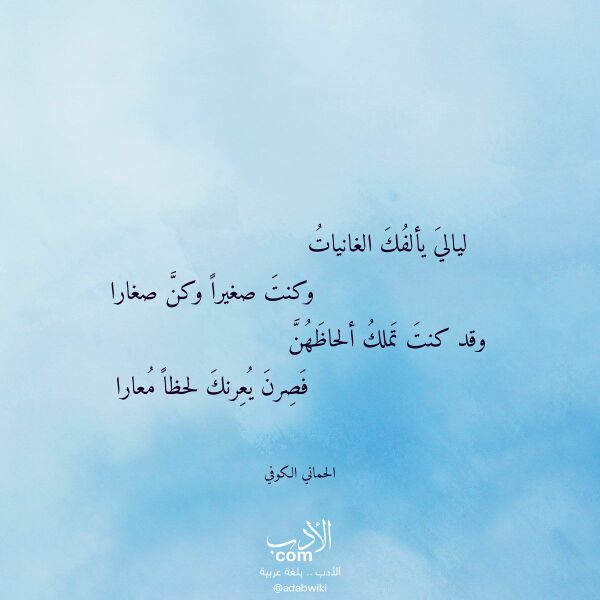 لياليَ يألفُكَ الغانياتُ
وكنتَ صغيراً وكنَّ صغارا
وقد كنتَ تَملكُ ألحاظَهُنَّ
فَصِرنَ يُعِرنكَ لحظاً مُعارا
الحماني الكوفي
الأدب
com
الأدب .. بلغة عربية
@adabwiki